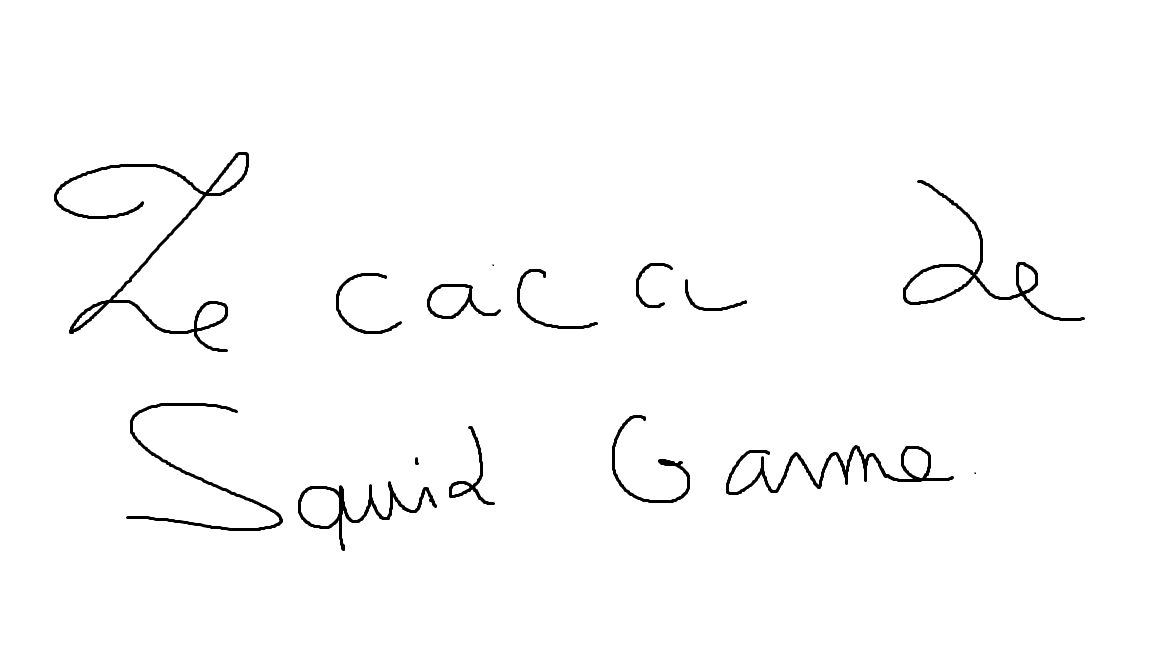 Le caca de
Squid Game